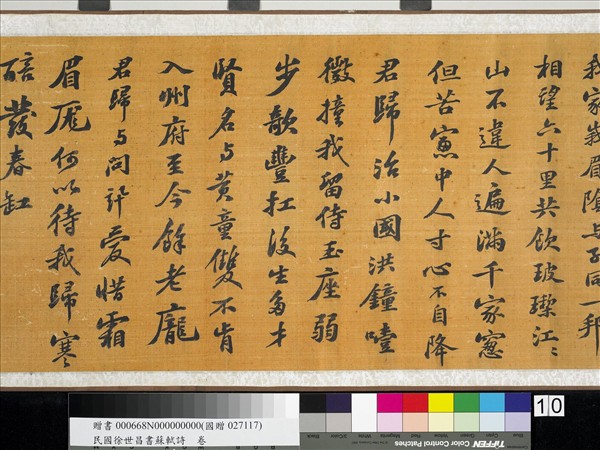 我家峩眉陰与子同一邦
相望六十里共飲玻瓈江〻
山不違人遍滿千家窻
但苦窻中人寸心不自降
君歸治小國洪鐘噎
微撞我留侍玉座弱
步欹豐扛後生多才
賢名与黄童雙不肯
入州府至今餘老龐
君歸与問訊愛惜霜
眉厖何以待我歸寒
醅發春缸
10
贈書 000668N000000000(國贈 027117)
民國徐世昌書蘇軾詩 卷
Blue Cyan Green Yellow Red Magenta White 3/Color Black
TIFFEN Color Control Patches